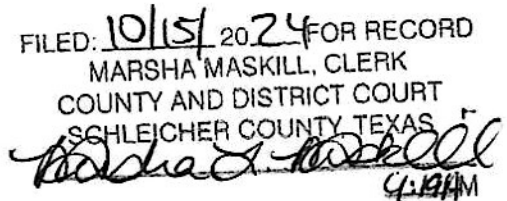 FILED: 10/15/ 2024 FOR RECORD
MARSHA MASKILL, CLERK
COUNTY AND DISTRICT COURT
SCHLEICHER COUNTY, TEXAS
Marsha L. Maskill